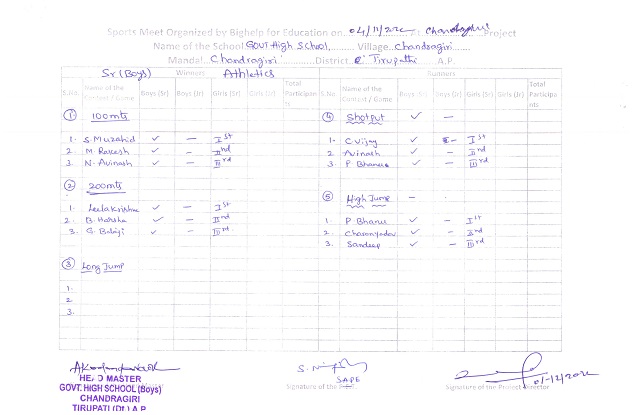 Sports Meet Organized by Bighelp for Education on. 04/11/202 At. Chandragiri Project
Name of the School GOVT High School, Village Chandragiri
Mandal Chandragiri District Tirupathi A.P.
Sr (Boys) Winners Athletics Runners
S.No. Name of the Contest / Game Boys (Sr) Boys (Jr) Girls (Sr) Girls (Jr) Total Participants S.No Name of the Contest / Game Boys (Sr) Boys (Jr) Girls (Sr) Girls (Jr) Total Participants
① 100mts ④ Shotput ✓ —
1. S. Muzahid ✓ — Ist 1- C. Vijay ✓ — Ist
2. M. Rakesh ✓ — IInd 2 Avinash ✓ — IInd
3. N. Avinash ✓ — IIIrd 3 P Bhanu ✓ — IIIrd
② 200mts ⑤ High Jump —
1. Leela Krishna ✓ — Ist 1. P Bhanu ✓ — Ist
2. B. Harsha ✓ — IInd 2. Charanyadav ✓ — IInd
3. G. Balaji ✓ — IIIrd 3. Sandeep ✓ — IIIrd
③ Long Jump
1.
2
3.
HEAD MASTER
GOVT. HIGH SCHOOL (Boys)
CHANDRAGIRI
TIRUPATI (Dt.) A.P.
Signature of the
SAPE
Signature of the Project Director
01-12/202